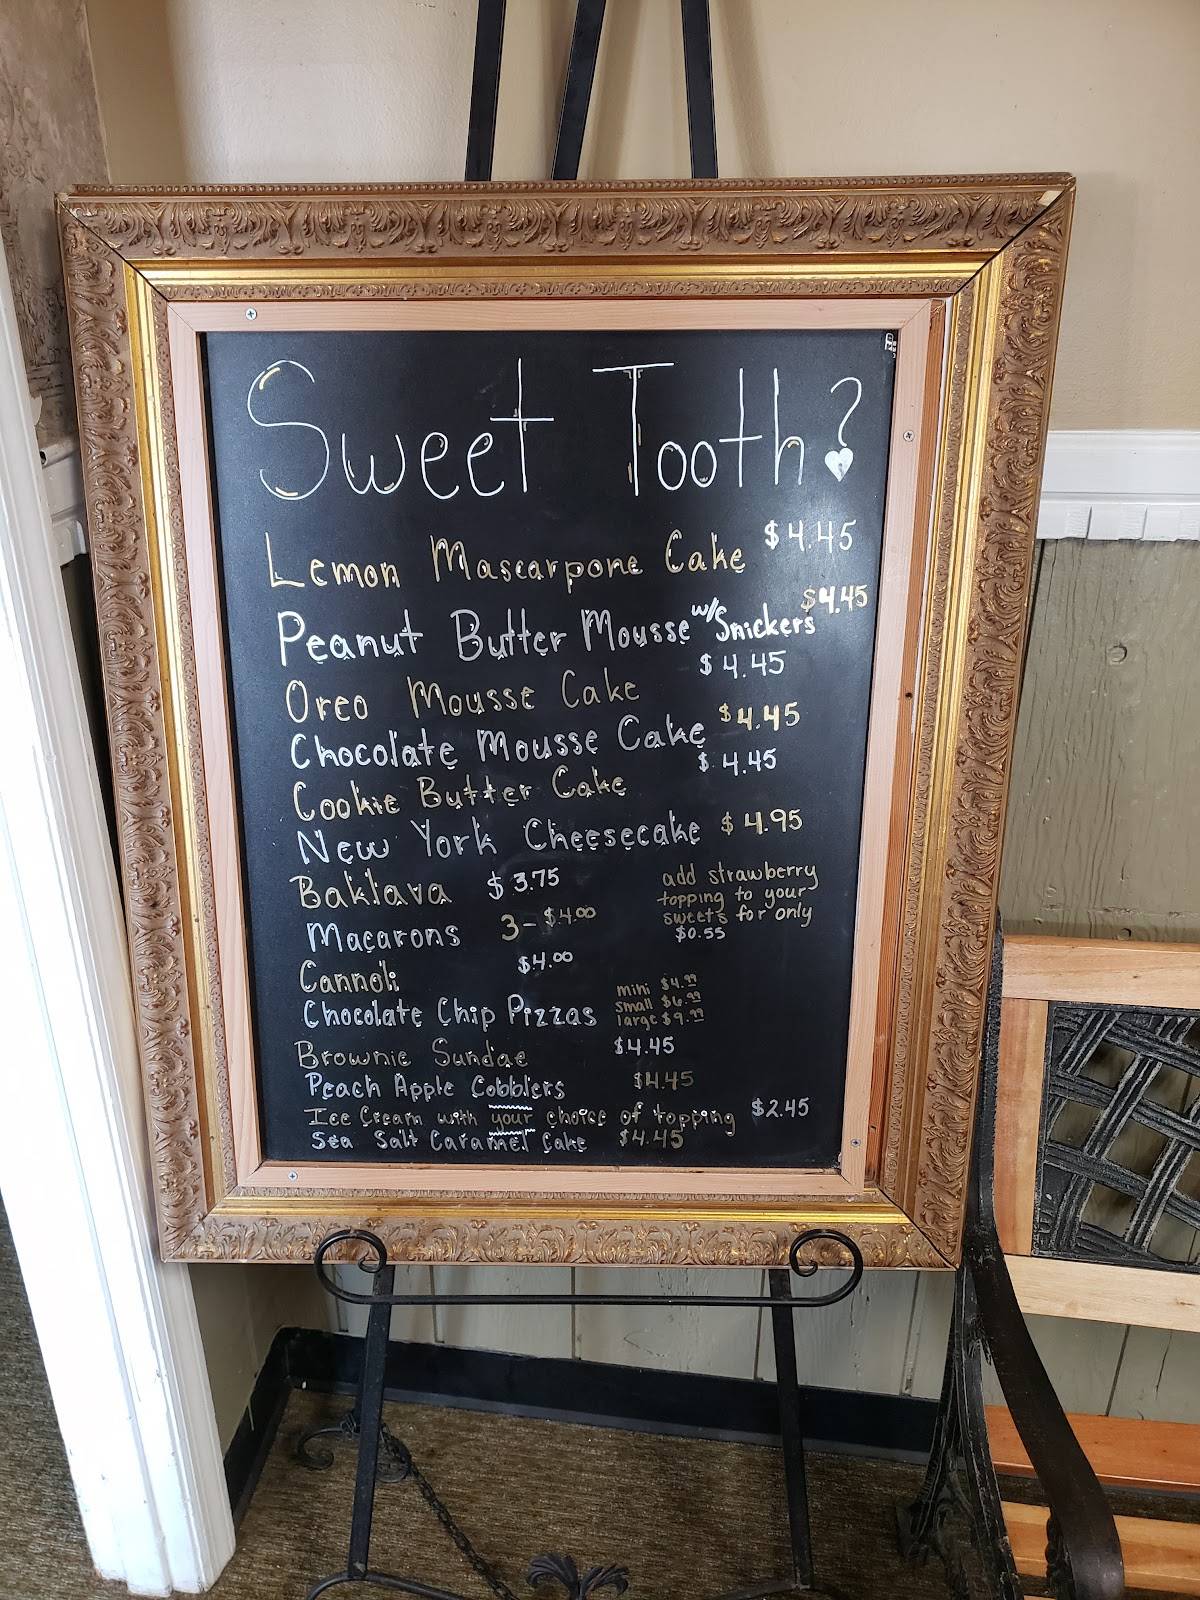 Sweet Tooth?
Lemon Mascarpone Cake $4.45
Peanut Butter Mousse w/Snickers $4.45
Oreo Mousse Cake $4.45
Chocolate Mousse Cake $4.45
Cookie Butter Cake $4.45
New York Cheesecake $4.95
Baklava $3.75
add strawberry
topping to your
sweets for only
$0.55
Macarons 3-$4.00
Cannoli $4.00
Chocolate Chip Pizzas
mini $4.99
small $6.99
large $9.99
Brownie Sundae $4.45
Peach Apple Cobblers $4.45
Ice Cream with your choice of topping $2.45
Sea Salt Caramel Cake $4.45